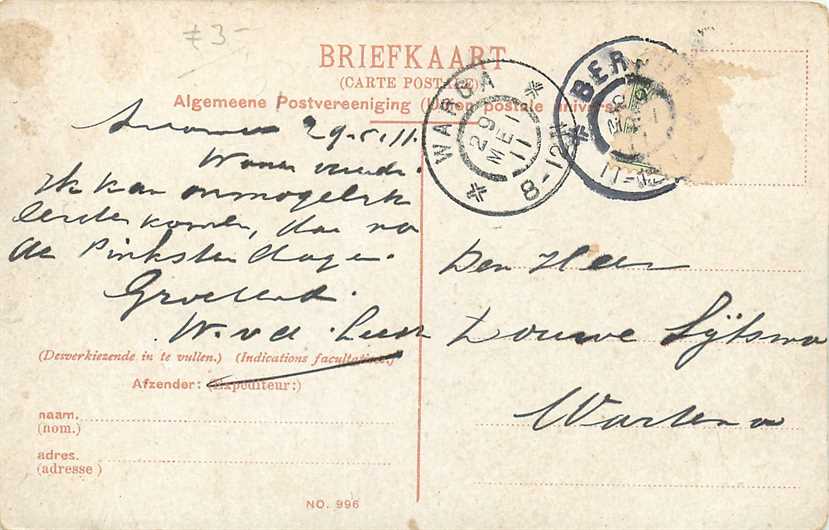 ≠ 3-
BRIEFKAART
(CARTE POSTALE)
Algemeene Postvereeniging (Union postale universelle)
WARGA
29 MEI 11
8-12
BER
11-12
29.5.11.
Waarde vriend.
Ik kan onmogelijk
eerder komen, dan na
de Pinkster dagen.
Groetend.
W. v d.
Den Heer
Douwe Sijtsma
Wartena
(Desverkiezende in te vullen.) (Indications facultatives.)
Afzender: (Expéditeur:)
naam.
(nom.)
adres.
(adresse)
NO. 996